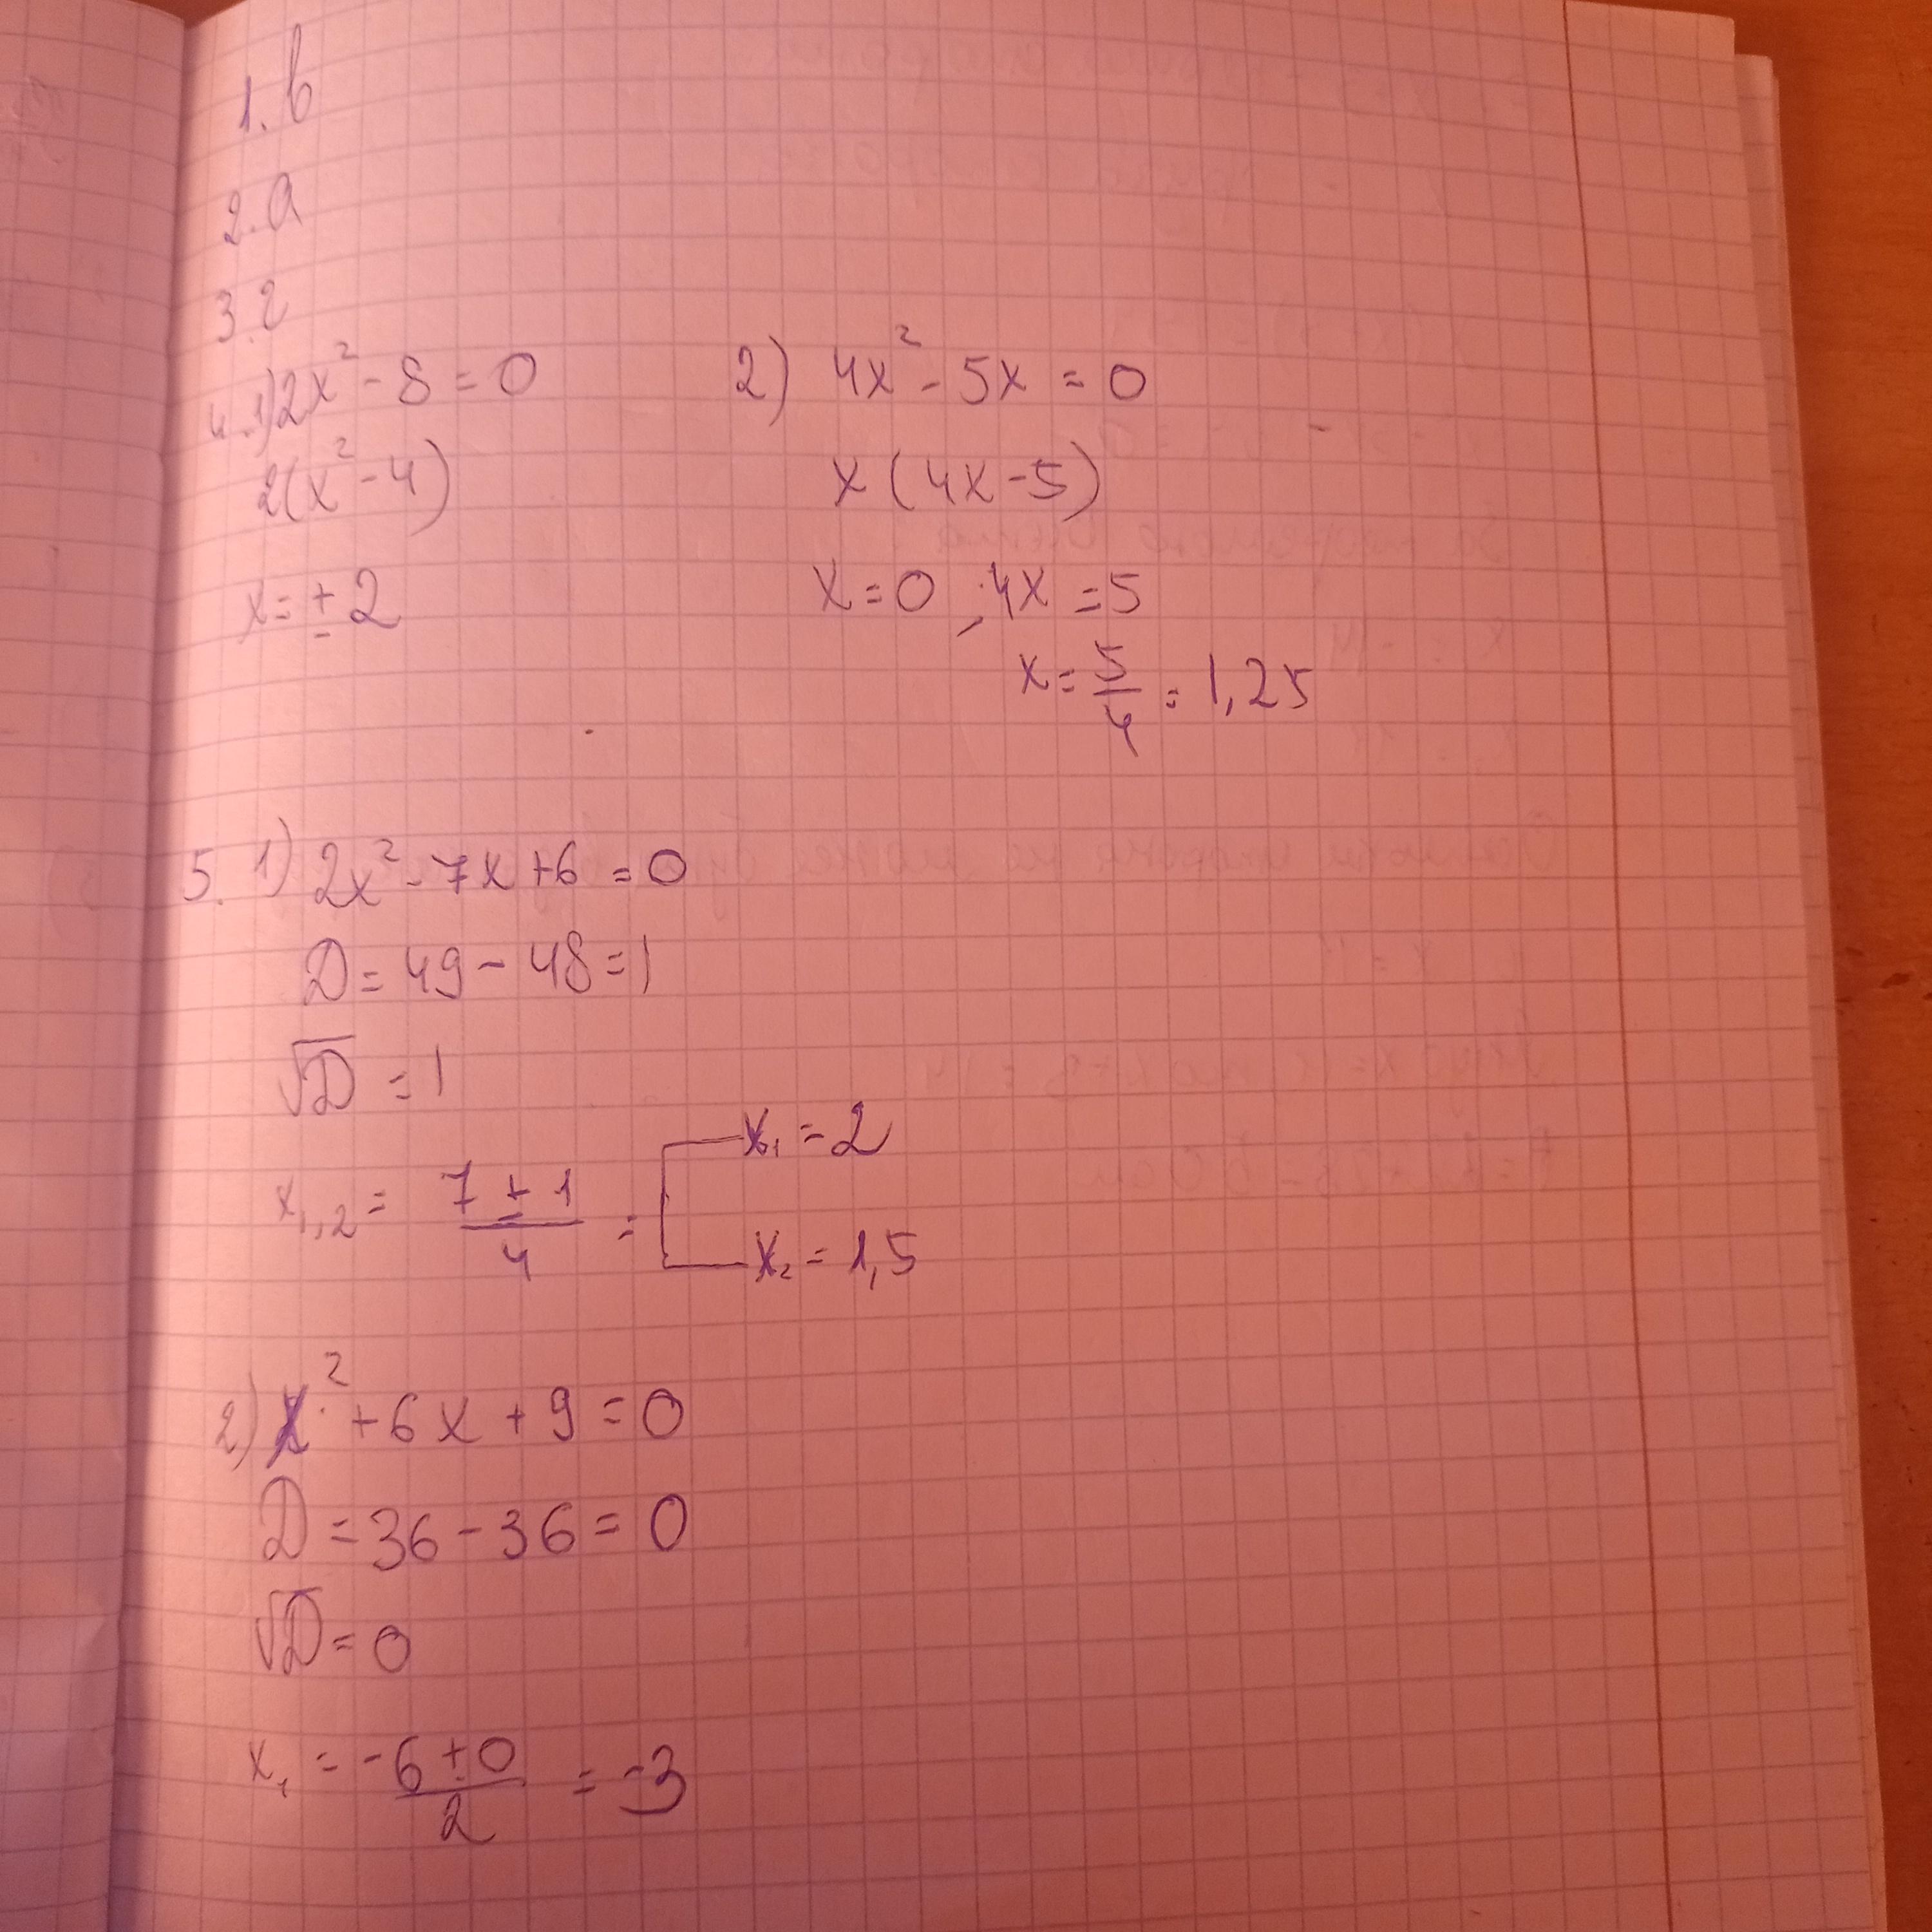 1. в
2. а
3. г
4. 1) 2x² - 8 = 0
2(x² - 4)
x = ± 2
2) 4x² - 5x = 0
x(4x - 5)
x = 0 ; 4x = 5
x = 5/4 = 1,25
5. 1) 2x² - 7x + 6 = 0
D = 49 - 48 = 1
√D = 1
x₁,₂ = (7 ± 1)/4 =
x₁ = 2
x₂ = 1,5
2) x² + 6x + 9 = 0
D = 36 - 36 = 0
√D = 0
x₁ = (-6 ± 0)/2 = -3